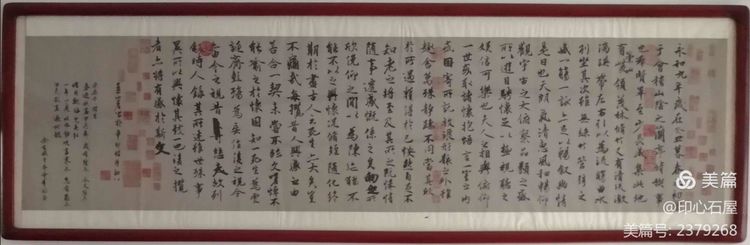 永和九年歲在癸丑暮春之初會
于會稽山陰之蘭亭脩禊事
也羣賢畢至少長咸集此地
有崇山峻領茂林脩竹又有清流激
湍暎帶左右引以為流觴曲水
列坐其次雖無絲竹管弦之
盛一觴一詠亦足以暢敘幽情
是日也天朗氣清惠風和暢仰
觀宇宙之大俯察品類之盛
所以遊目騁懷足以極視聽之
娛信可樂也夫人之相與俯仰
一世或取諸懷抱悟言一室之內
或因寄所託放浪形骸之外雖
趣舍萬殊靜躁不同當其欣
於所遇暫得於己怏然自足不
知老之將至及其所之既惓情
隨事遷感慨係之矣向之所
欣俛仰之間以為陳迹猶不
能不以之興懷況脩短隨化終
期於盡古人云死生亦大矣豈
不痛哉每攬昔人興感之由
若合一契未嘗不臨文嗟悼不
能喻之於懷固知一死生為虛
誕齊彭殤為妄作後之視今
亦由今之視昔悲夫故列
敘時人錄其所述雖世殊事
異所以興懷其致一也後之攬
者亦將有感於斯文
美篇
@印心石屋
美篇号: 2379268